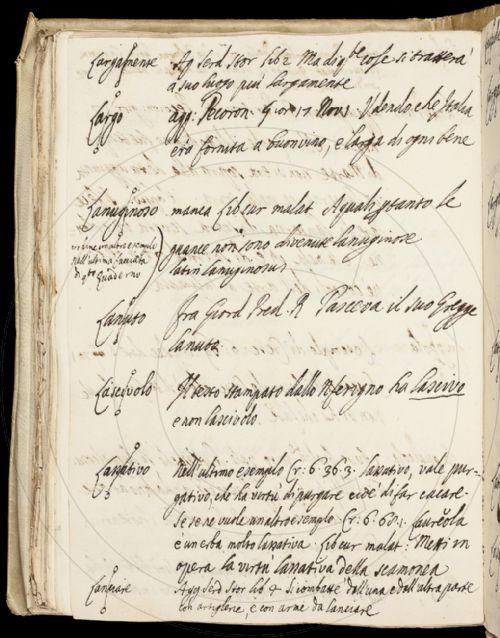 Largamente Agg Serd Stor lib 2 Ma di q.te cose si tratterà
a suo luogo piu largamente
Largo agg. Pecoron. Gior 17 Nov 1. Udendo, che Italia
era fornita a buon vino, e larga di ogni bene
Lanuginoso manca lib cur malat A quali quanto le
guance non sono divenute lanuginose
latin lanuginosus
nell'ultima facciata
di q.to quaderno
Lanuto fra Giord Pred. R Pasceva il suo Gregge
lanuto
Lascivolo Il testo stampato dallo Nferigno ha lascivo
e non lascivolo
Lassativo Nell'ultimo esemplo Cr. 6. 36. 3. lassativo, vale pur-
gativo, che ha virtù di purgare cioè di far cacare.
Se se ne vuole un altro esemplo Cr. 6. 63. 1. Laureola
è un erba molto lassativa lib cur malat: Metti in
opera la virtù lassativa della scamonea
Lanciare Agg Serd Stor lib Si combatte dall'una e dall'altra parte
con artiglierie, e con arme da lanciare